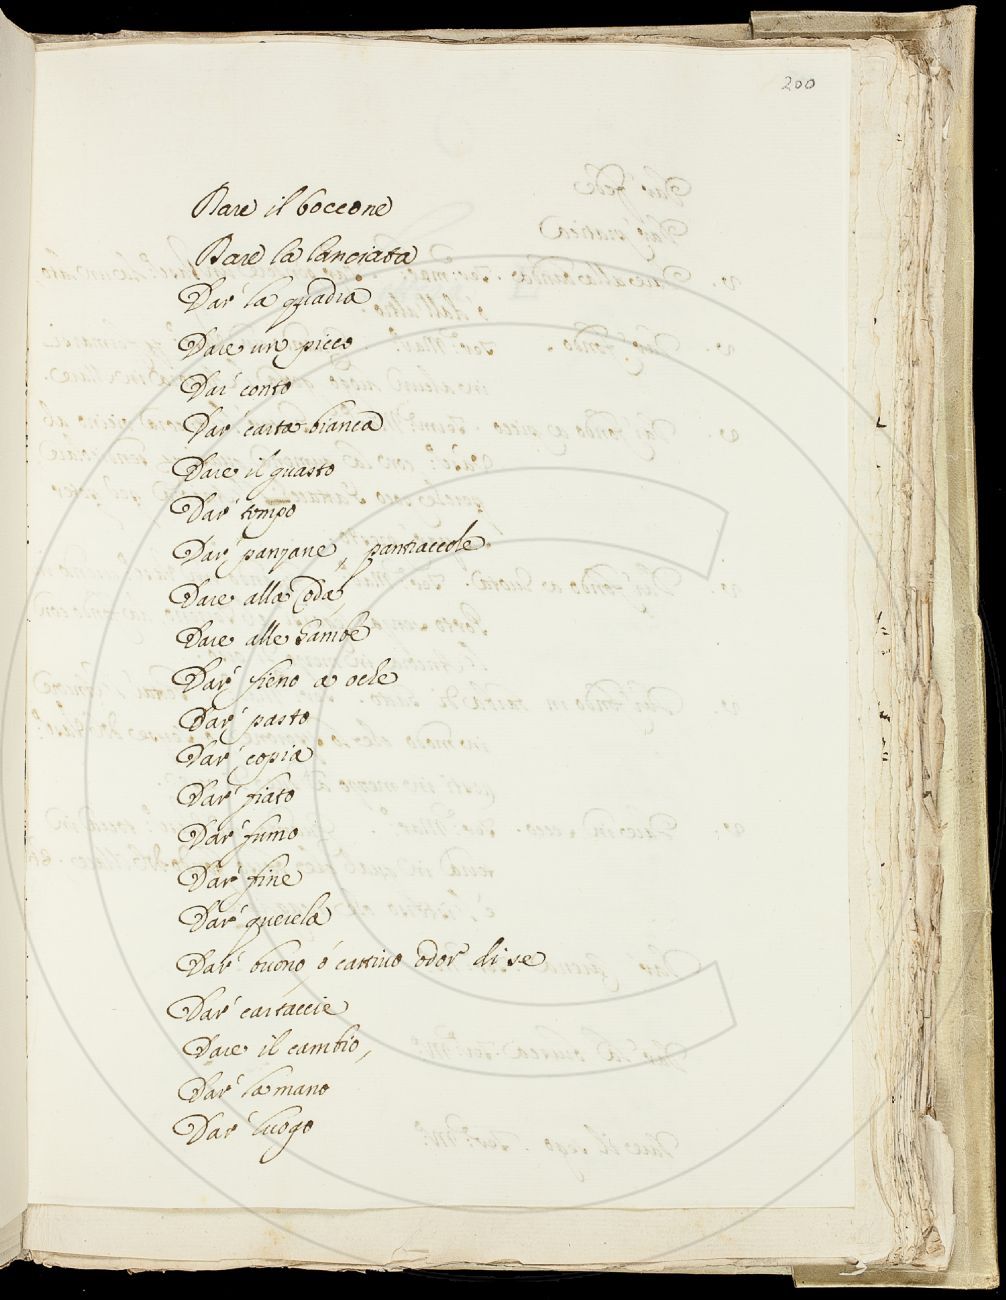 200
Dare il boccone
Dare la lanciata
Dar' la quadra
Dare un picco
Dar' conto
Dar' carta bianca
Dare il guasto
Dar' tempo
Dar' panzane, pantraccole
Dare alla Coda
Dare alle Gambe
Dar' fieno a oche
Dar' pasto
Dar' copia
Dar' fiato
Dar' fumo
Dar' fine
Dar' querela
Dar' buono ó cattivo odor' di se
Dar' cartaccie
Dare il cambio,
Dar' la mano
Dar' luogo